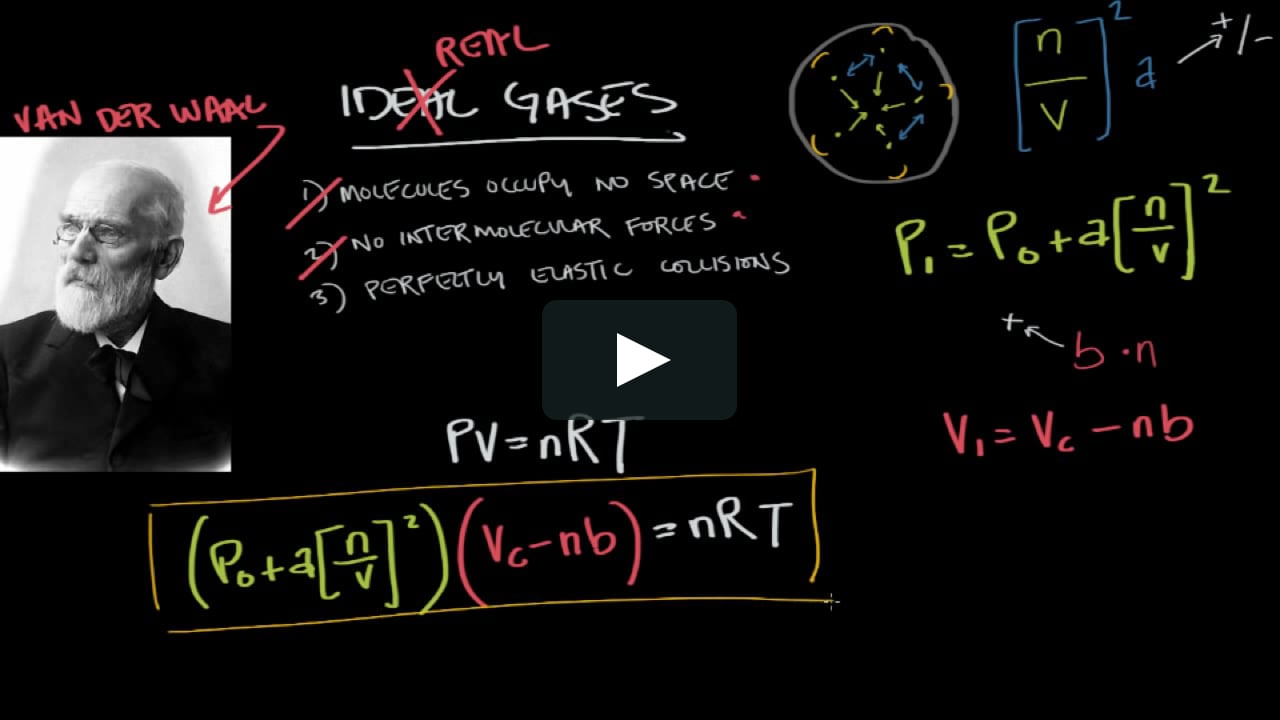 REAL
IDEAL GASES
VAN DER WAAL
1) MOLECULES OCCUPY NO SPACE
2) NO INTERMOLECULAR FORCES
3) PERFECTLY ELASTIC COLLISIONS
[n/V]² a +/-
P₁ = P₀ + a[n/V]²
+ b · n
V₁ = V_C - nb
PV = nRT
(P₀ + a[n/V]²)(V_C - nb) = nRT